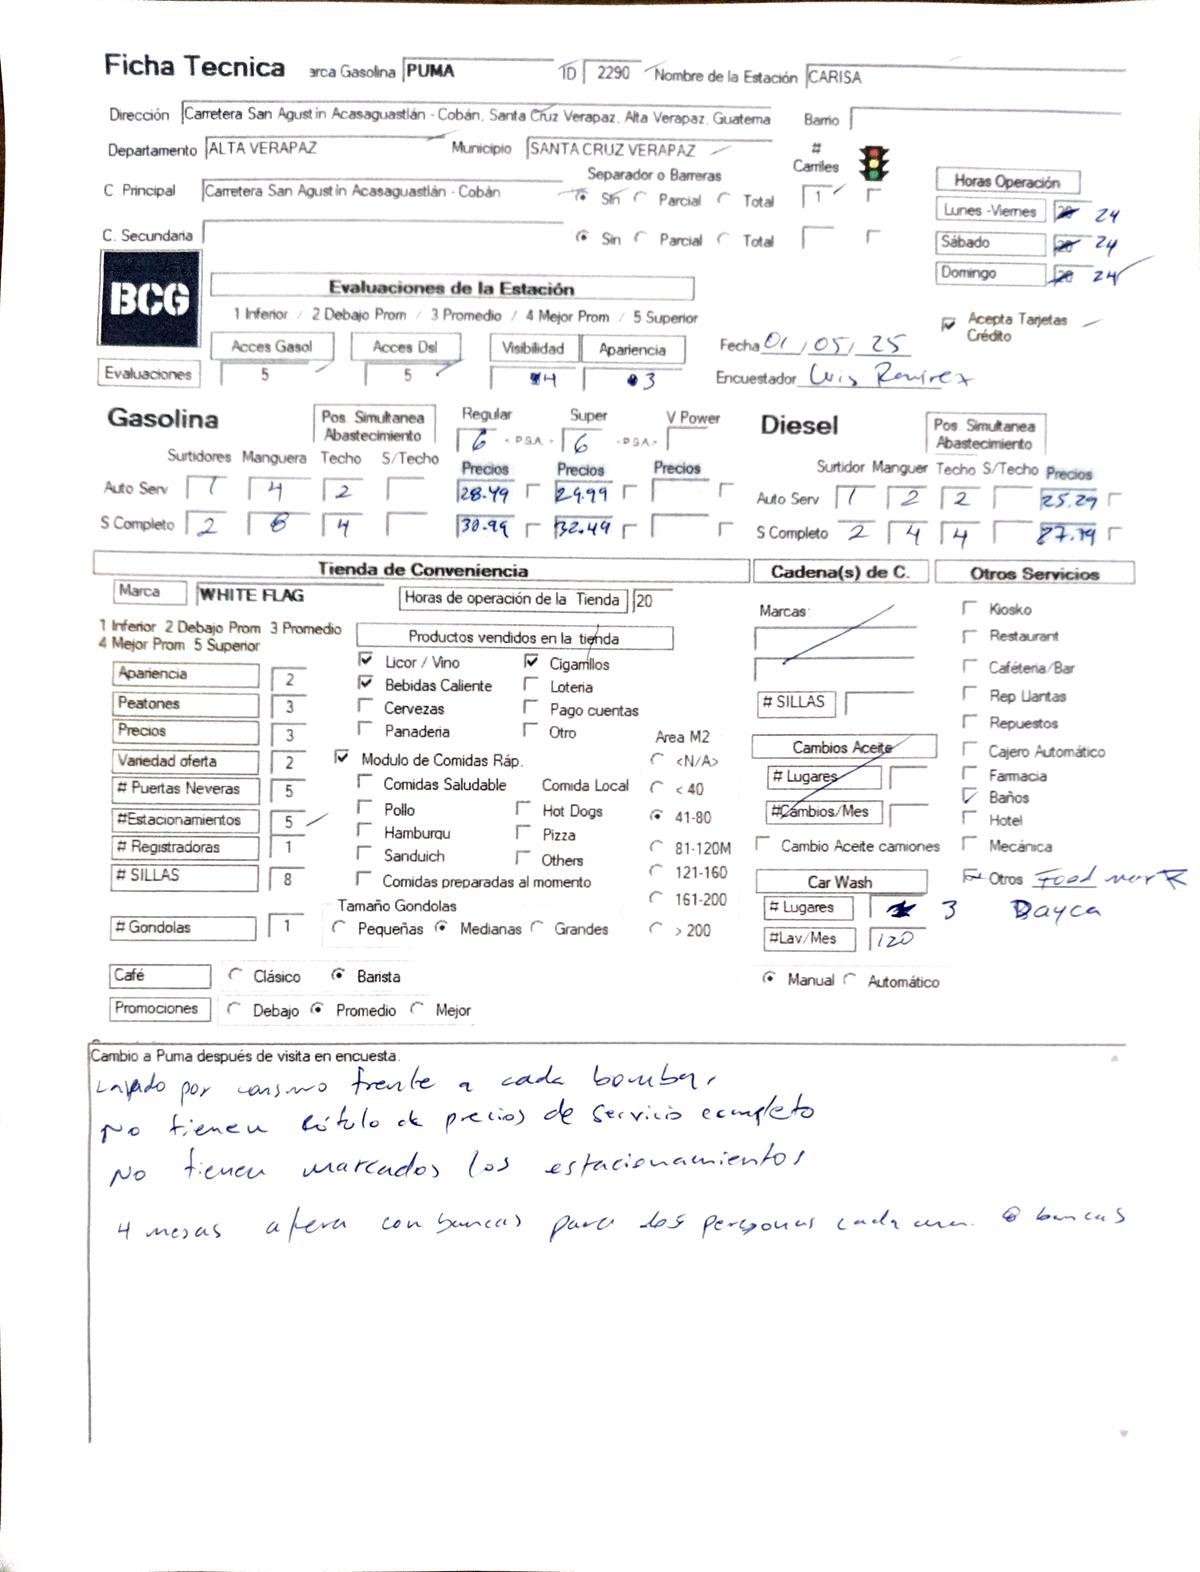 Ficha Tecnica arca Gasolina PUMA ID 2290 Nombre de la Estación CARISA
Dirección Carretera San Agustin Acasaguastlán - Cobán, Santa Cruz Verapaz, Alta Verapaz, Guatema Barrio
Departamento ALTA VERAPAZ Municipio SANTA CRUZ VERAPAZ # Carriles
Separador o Barreras
C Principal Carretera San Agustin Acasaguastlán - Cobán Sin Parcial Total 1
C. Secundaria Sin Parcial Total
Horas Operación
Lunes -Viernes 24
Sábado 24
Domingo 24
BCG
Evaluaciones de la Estación
1 Inferior / 2 Debajo Prom / 3 Promedio / 4 Mejor Prom / 5 Superior
Acepta Tarjetas Crédito
Acces Gasol Acces Dsl Visibilidad Apariencia
Evaluaciones 5 5 4 3
Fecha 01/05/25
Encuestador Luis Ramirez
Gasolina Pos. Simultanea Abastecimiento Regular Super V Power
6 - P.S.A. - 6 - P.S.A. -
Surtidores Manguera Techo S/Techo Precios Precios Precios
Auto Serv 1 4 2 28.49 29.99
S Completo 2 8 4 30.99 32.49
Diesel Pos. Simultanea Abastecimiento
Surtidor Manguer Techo S/Techo Precios
Auto Serv 1 2 2 25.29
S Completo 2 4 4 27.79
Tienda de Conveniencia
Marca WHITE FLAG Horas de operación de la Tienda 20
1 Inferior 2 Debajo Prom 3 Promedio
4 Mejor Prom 5 Superior
Apariencia 2
Peatones 3
Precios 3
Variedad oferta 2
# Puertas Neveras 5
#Estacionamientos 5
# Registradoras 1
# SILLAS 8
# Gondolas 1
Productos vendidos en la tienda
Licor / Vino Cigarrillos
Bebidas Caliente Loteria
Cervezas Pago cuentas
Panaderia Otro
Modulo de Comidas Ráp.
Comidas Saludable Comida Local
Pollo Hot Dogs
Hamburqu Pizza
Sanduich Others
Comidas preparadas al momento
Area M2
<N/A>
< 40
41-80
81-120M
121-160
161-200
> 200
Tamaño Gondolas
Pequeñas Medianas Grandes
Café Clásico Barista
Promociones Debajo Promedio Mejor
Cadena(s) de C.
Marcas:
# SILLAS
Cambios Aceite
# Lugares
#Cambios/Mes
Cambio Aceite camiones
Car Wash
# Lugares 3
#Lav/Mes 120
Manual Automático
Otros Servicios
Kiosko
Restaurant
Caféteria/Bar
Rep Llantas
Repuestos
Cajero Automático
Farmacia
Baños
Hotel
Mecánica
Otros Food mart
Dayca
Cambio a Puma después de visita en encuesta.
Lavado por consumo frente a cada bomba,
No tienen Rótulo de precios de servicio completo
No tienen marcados los estacionamientos
4 mesas afuera con bancas para dos personas cada una. 8 bancas